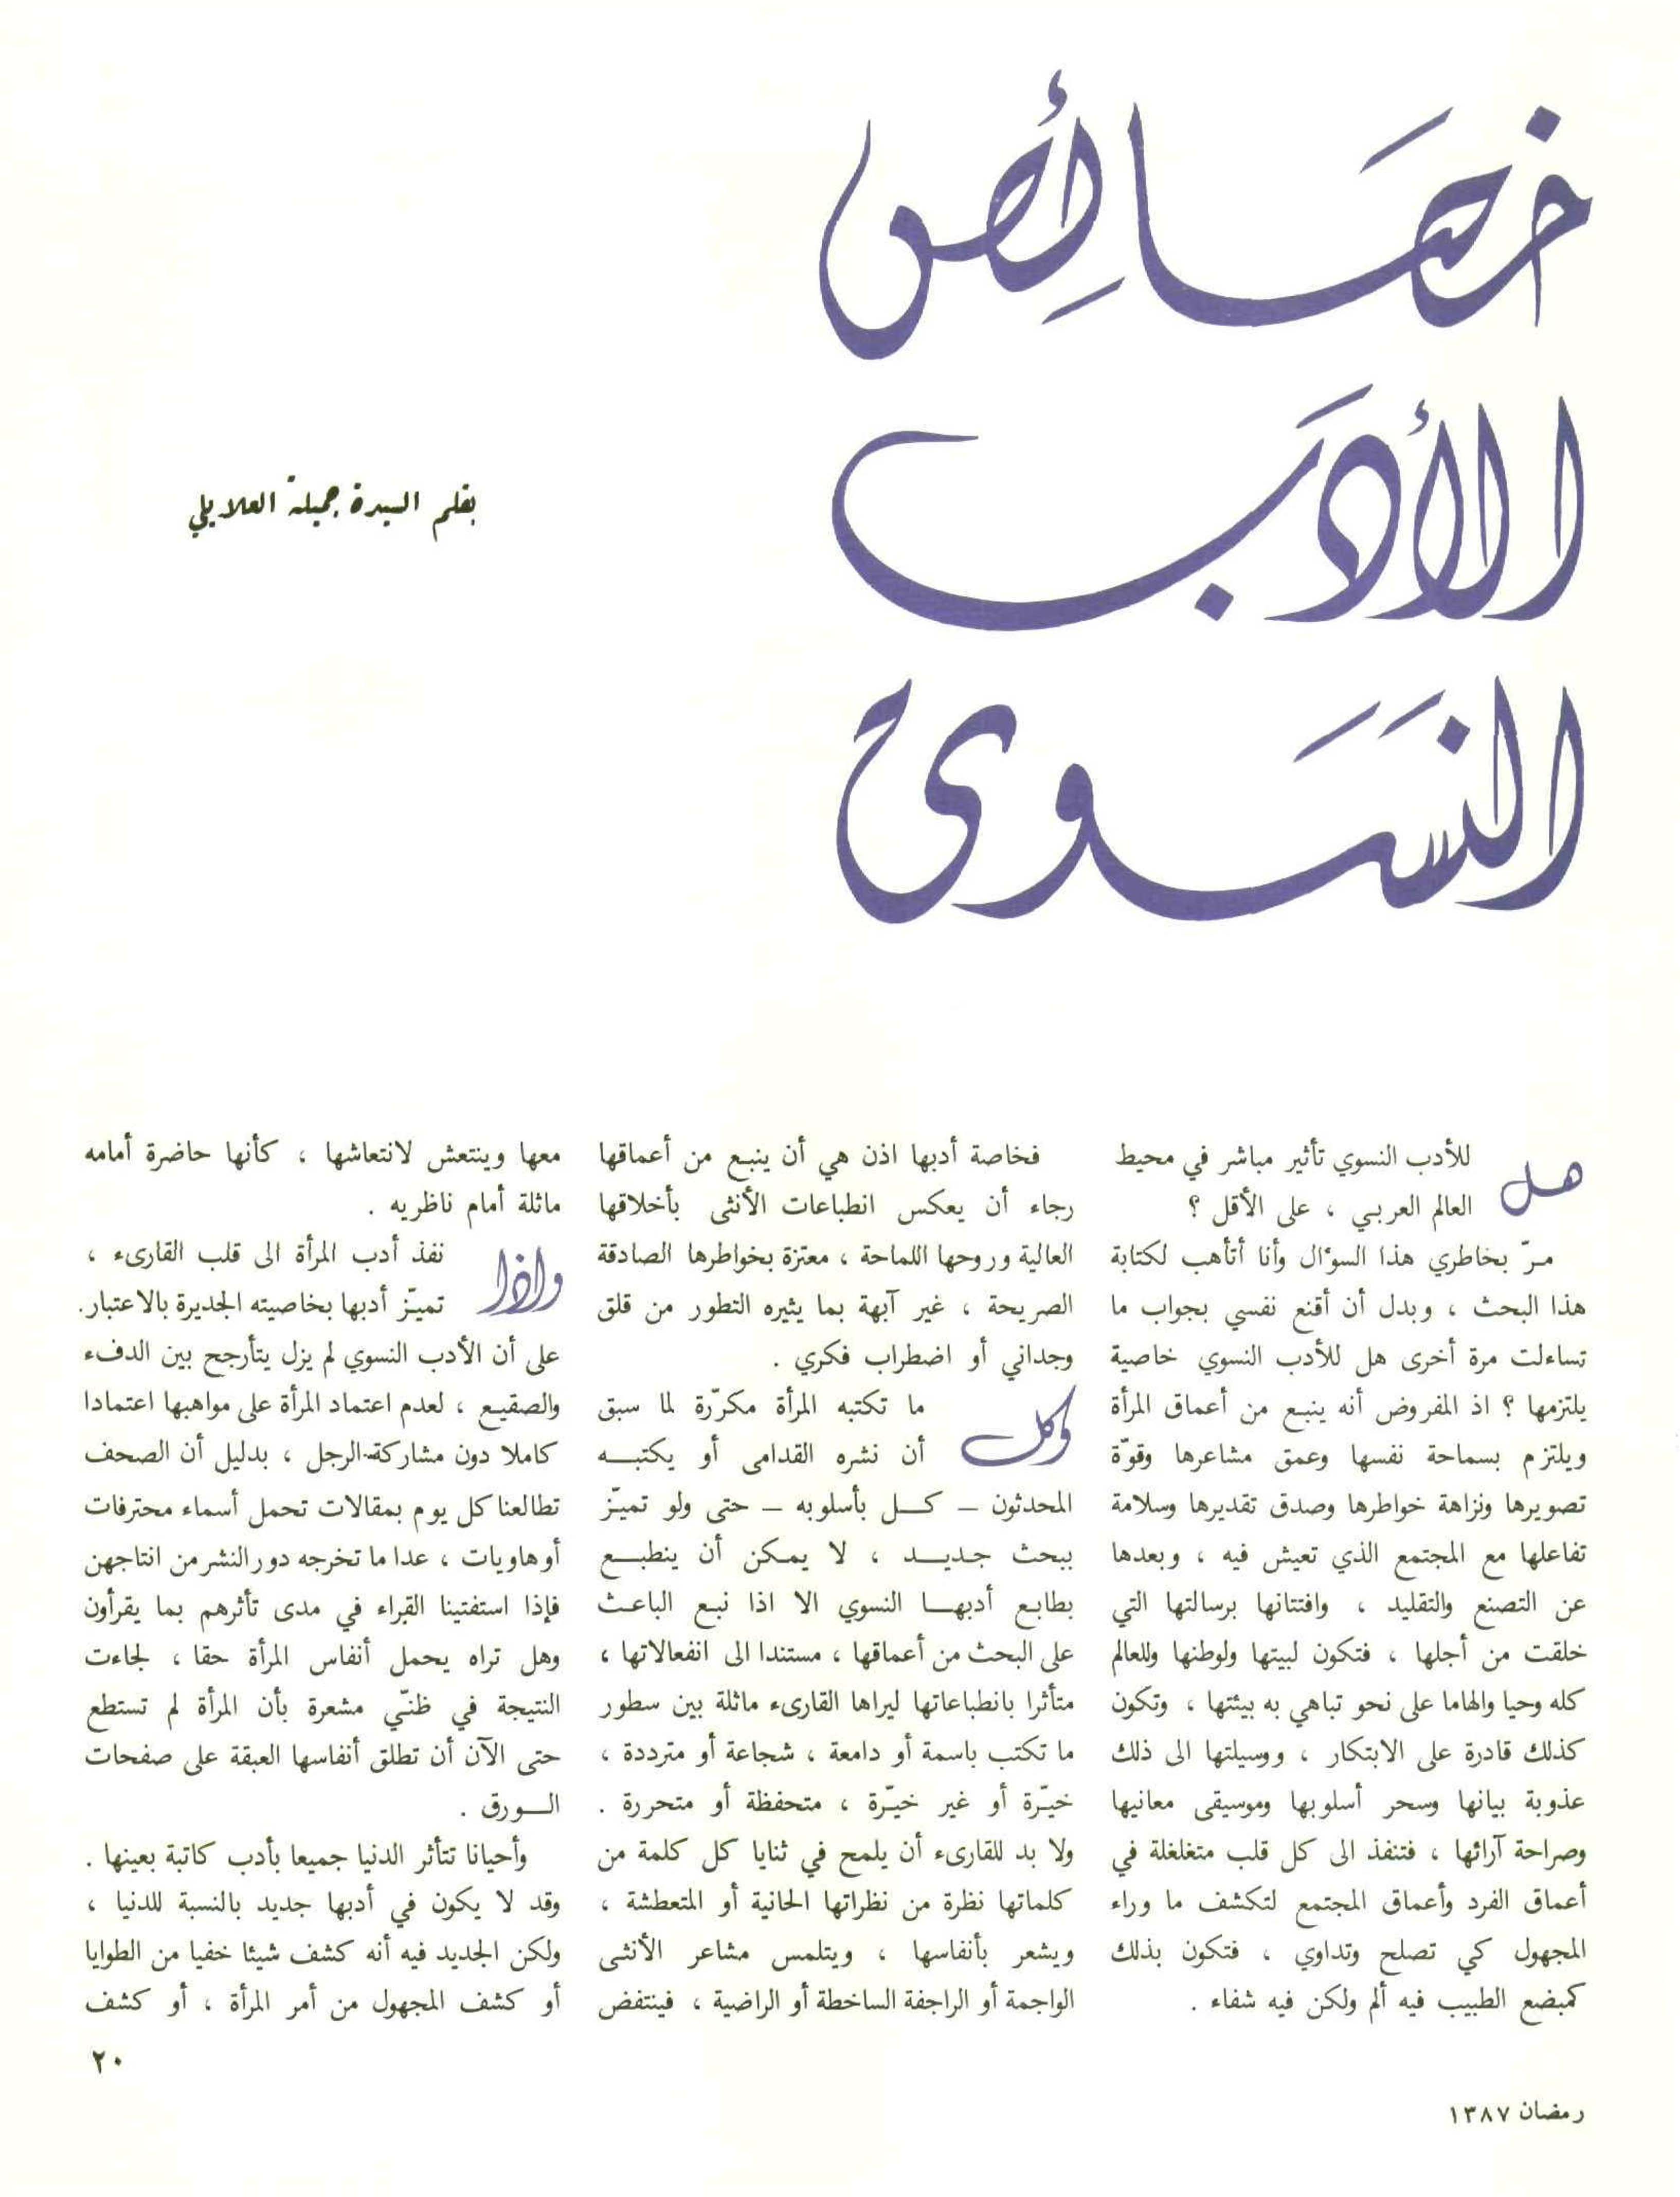 خصَائِص
الأدَب
النسَوي
بقلم السيدة جميلة العلايلي
هل للأدب النسوي تأثير مباشر في محيط
العالم العربي ، على الأقل ؟
مرّ بخاطري هذا السؤال وأنا أتأهب لكتابة
هذا البحث ، وبدل أن أقنع نفسي بجواب ما
تساءلت مرة أخرى هل للأدب النسوي خاصية
يلتزمها ؟ اذ المفروض أنه ينبع من أعماق المرأة
ويلتزم بسماحة نفسها وعمق مشاعرها وقوّة
تصويرها ونزاهة خواطرها وصدق تقديرها وسلامة
تفاعلها مع المجتمع الذي تعيش فيه ، وبعدها
عن التصنع والتقليد ، وافتتانها برسالتها التي
خلقت من أجلها ، فتكون لبيتها ولوطنها وللعالم
كله وحيا والهاما على نحو تباهي به بيئتها ، وتكون
كذلك قادرة على الابتكار ، ووسيلتها الى ذلك
عذوبة بيانها وسحر أسلوبها وموسيقى معانيها
وصراحة آرائها ، فتنفذ الى كل قلب متغلغلة في
أعماق الفرد وأعماق المجتمع لتكشف ما وراء
المجهول كي تصلح وتداوي ، فتكون بذلك
كمبضع الطبيب فيه ألم ولكن فيه شفاء .
فخاصة أدبها اذن هي أن ينبع من أعماقها
رجاء أن يعكس انطباعات الأنثى بأخلاقها
العالية وروحها اللماحة ، معتزة بخواطرها الصادقة
الصريحة ، غير آبهة بما يثيره التطور من قلق
وجداني أو اضطراب فكري .
وكل ما تكتبه المرأة مكرّرة لما سبق
أن نشره القدامى أو يكتبه
المحدثون – كل بأسلوبه – حتى ولو تميّز
ببحث جديد ، لا يمكن أن ينطبع
بطابع أدبها النسوي الا اذا نبع الباعث
على البحث من أعماقها ، مستندا الى انفعالاتها ،
متأثرا بانطباعاتها ليراها القارىء ماثلة بين سطور
ما تكتب باسمة أو دامعة ، شجاعة أو مترددة ،
خيّرة أو غير خيّرة ، متحفظة أو متحررة .
ولا بد للقارىء أن يلمح في ثنايا كل كلمة من
كلماتها نظرة من نظراتها الحانية أو المتعطشة ،
ويشعر بأنفاسها ، ويتلمس مشاعر الأنثى
الواجمة أو الراجفة الساخطة أو الراضية ، فينتفض
معها وينتعش لانتعاشها ، كأنها حاضرة أمامه
ماثلة أمام ناظريه .
واذا نفذ أدب المرأة الى قلب القارىء ،
تميّز أدبها بخاصيته الجديرة بالاعتبار.
على أن الأدب النسوي لم يزل يتأرجح بين الدفء
والصقيع ، لعدم اعتماد المرأة على مواهبها اعتمادا
كاملا دون مشاركة الرجل ، بدليل أن الصحف
تطالعنا كل يوم بمقالات تحمل أسماء محترفات
أو هاويات ، عدا ما تخرجه دور النشر من انتاجهن
فإذا استفتينا القراء في مدى تأثرهم بما يقرأون
وهل تراه يحمل أنفاس المرأة حقا ، لجاءت
النتيجة في ظنّي مشعرة بأن المرأة لم تستطع
حتى الآن أن تطلق أنفاسها العبقة على صفحات
الورق .
وأحيانا تتأثر الدنيا جميعا بأدب كاتبة بعينها .
وقد لا يكون في أدبها جديد بالنسبة للدنيا ،
ولكن الجديد فيه أنه كشف شيئا خفيا من الطوايا
أو كشف المجهول من أمر المرأة ، أو كشف
٢٠
رمضان ١٣٨٧